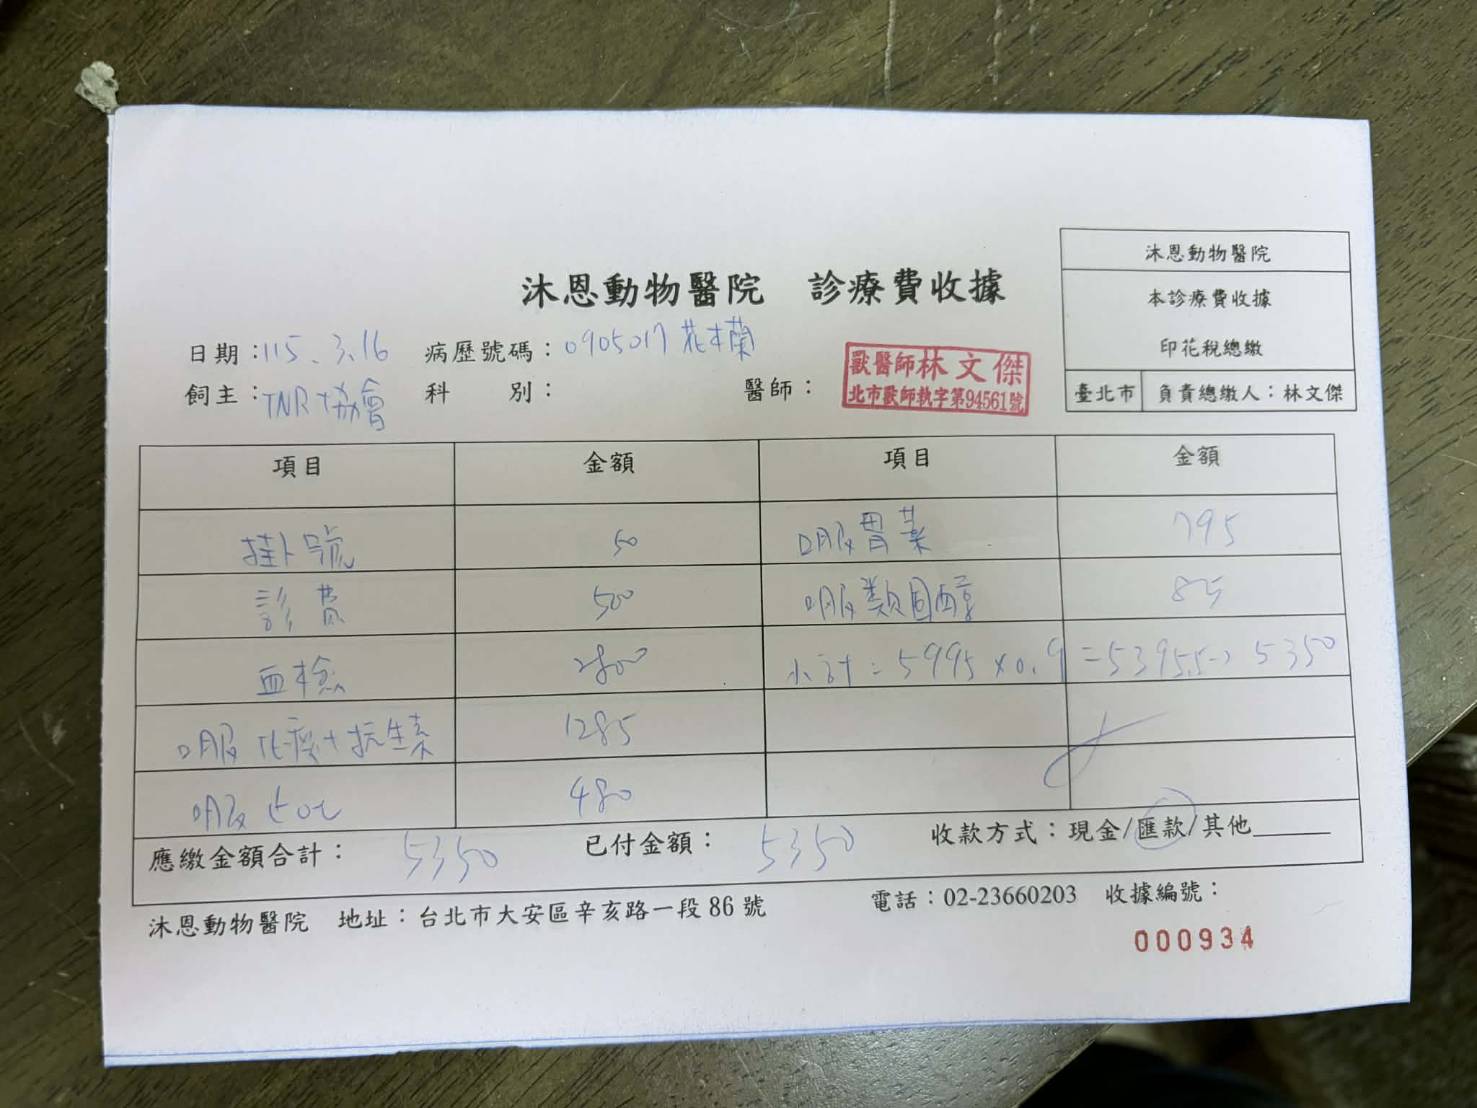 沐恩動物醫院
本診療費收據
印花稅總繳
臺北市 負責總繳人：林文傑
沐恩動物醫院 診療費收據
日期：115.3.16 病歷號碼：0905017 花木蘭
飼主：TNR協會 科 別： 醫師：
獸醫師林文傑
北市獸師執字第94561號
項目 金額 項目 金額
掛號 50 口服胃藥 795
診費 500 口服類固醇 85
血檢 2800 小計：5995×0.9=5395.5→5350
口服化痰+抗生素 1285
口服 480
應繳金額合計：5350 已付金額：5350 收款方式：現金/匯款/其他
沐恩動物醫院 地址：台北市大安區辛亥路一段86號 電話：02-23660203 收據編號：
000934